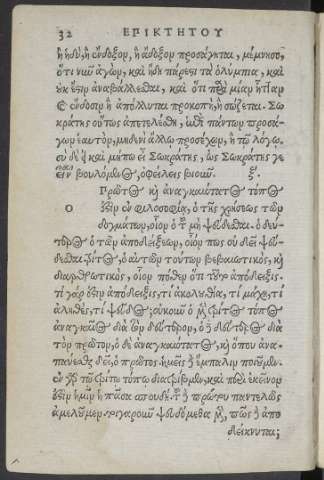 32 ΕΠΙΚΤΗΤΟΥ
ἢ ἡδὺ, ἢ ἔνδοξον, ἢ ἄδοξον προσάγηται, μέμνησο,
ὅτι νῦν ἀγὼν, καὶ ἤδη πάρεστι τὰ ὀλύμπια, καὶ
οὐκ ἔστιν ἀναβάλλεσθαι, καὶ ὅτι παρὰ μίαν ἧτταν
καὶ ἔνδοσιν ἢ ἀπόλλυται προκοπὴ, ἢ σώζεται. Σω
κράτης οὕτως ἀπετελέσθη, ἐπὶ πάντων προσά-
γων ἑαυτὸν, μηδενὶ ἄλλῳ προσέχων, ἢ τῷ λόγῳ.
σὺ δὲ εἰ καὶ μήπω εἶ Σωκράτης, ὡς Σωκράτης γε
εἶναι βουλόμενος, ὀφείλεις βιοῦν. ξ.
Πρῶτος καὶ ἀναγκαιότατος τόπος
Ο ἐστὶν ἐν φιλοσοφίᾳ, ὁ τῆς χρήσεως τῶν
δογμάτων, οἷον ὁ τοῦ μὴ ψεύδεσθαι. ὁ δεύ-
τερος ὁ τῶν ἀποδείξεων, οἷον πῶς οὐ δεῖ ψεύ-
δεσθαι. τρίτος, ὁ αὐτῶν τούτων βεβαιωτικὸς, καὶ
διαρθρωτικὸς, οἷον πόθεν ὅτι τοῦτο ἀπόδειξις.
τί γάρ ἐστιν ἀπόδειξις, τί ἀκολουθία, τί μάχη, τί
ἀληθὲς, τί ψεῦδος; οὐκοῦν ὁ μὲν τρίτος τόπος
ἀναγκαῖος διὰ τὸν δεύτερον, ὁ δὲ δεύτερος διὰ
τὸν πρῶτον, ὁ δὲ ἀναγκαιότατος, καὶ ὅπου ἀνα-
παύεσθαι δεῖ, ὁ πρῶτος. ἡμεῖς δὲ ἔμπαλιν ποιοῦμεν.
ἐν γὰρ τῷ τρίτῳ τόπῳ διατρίβομεν, καὶ περὶ ἐκεῖνον
ἐστὶν ἡμῖν ἡ πᾶσα σπουδή. τοῦ δὲ πρώτου παντελῶς
ἀμελοῦμεν. τοιγαροῦν ψευδόμεθα μὲν, πῶς δὲ ἀπο
δείκνυται;